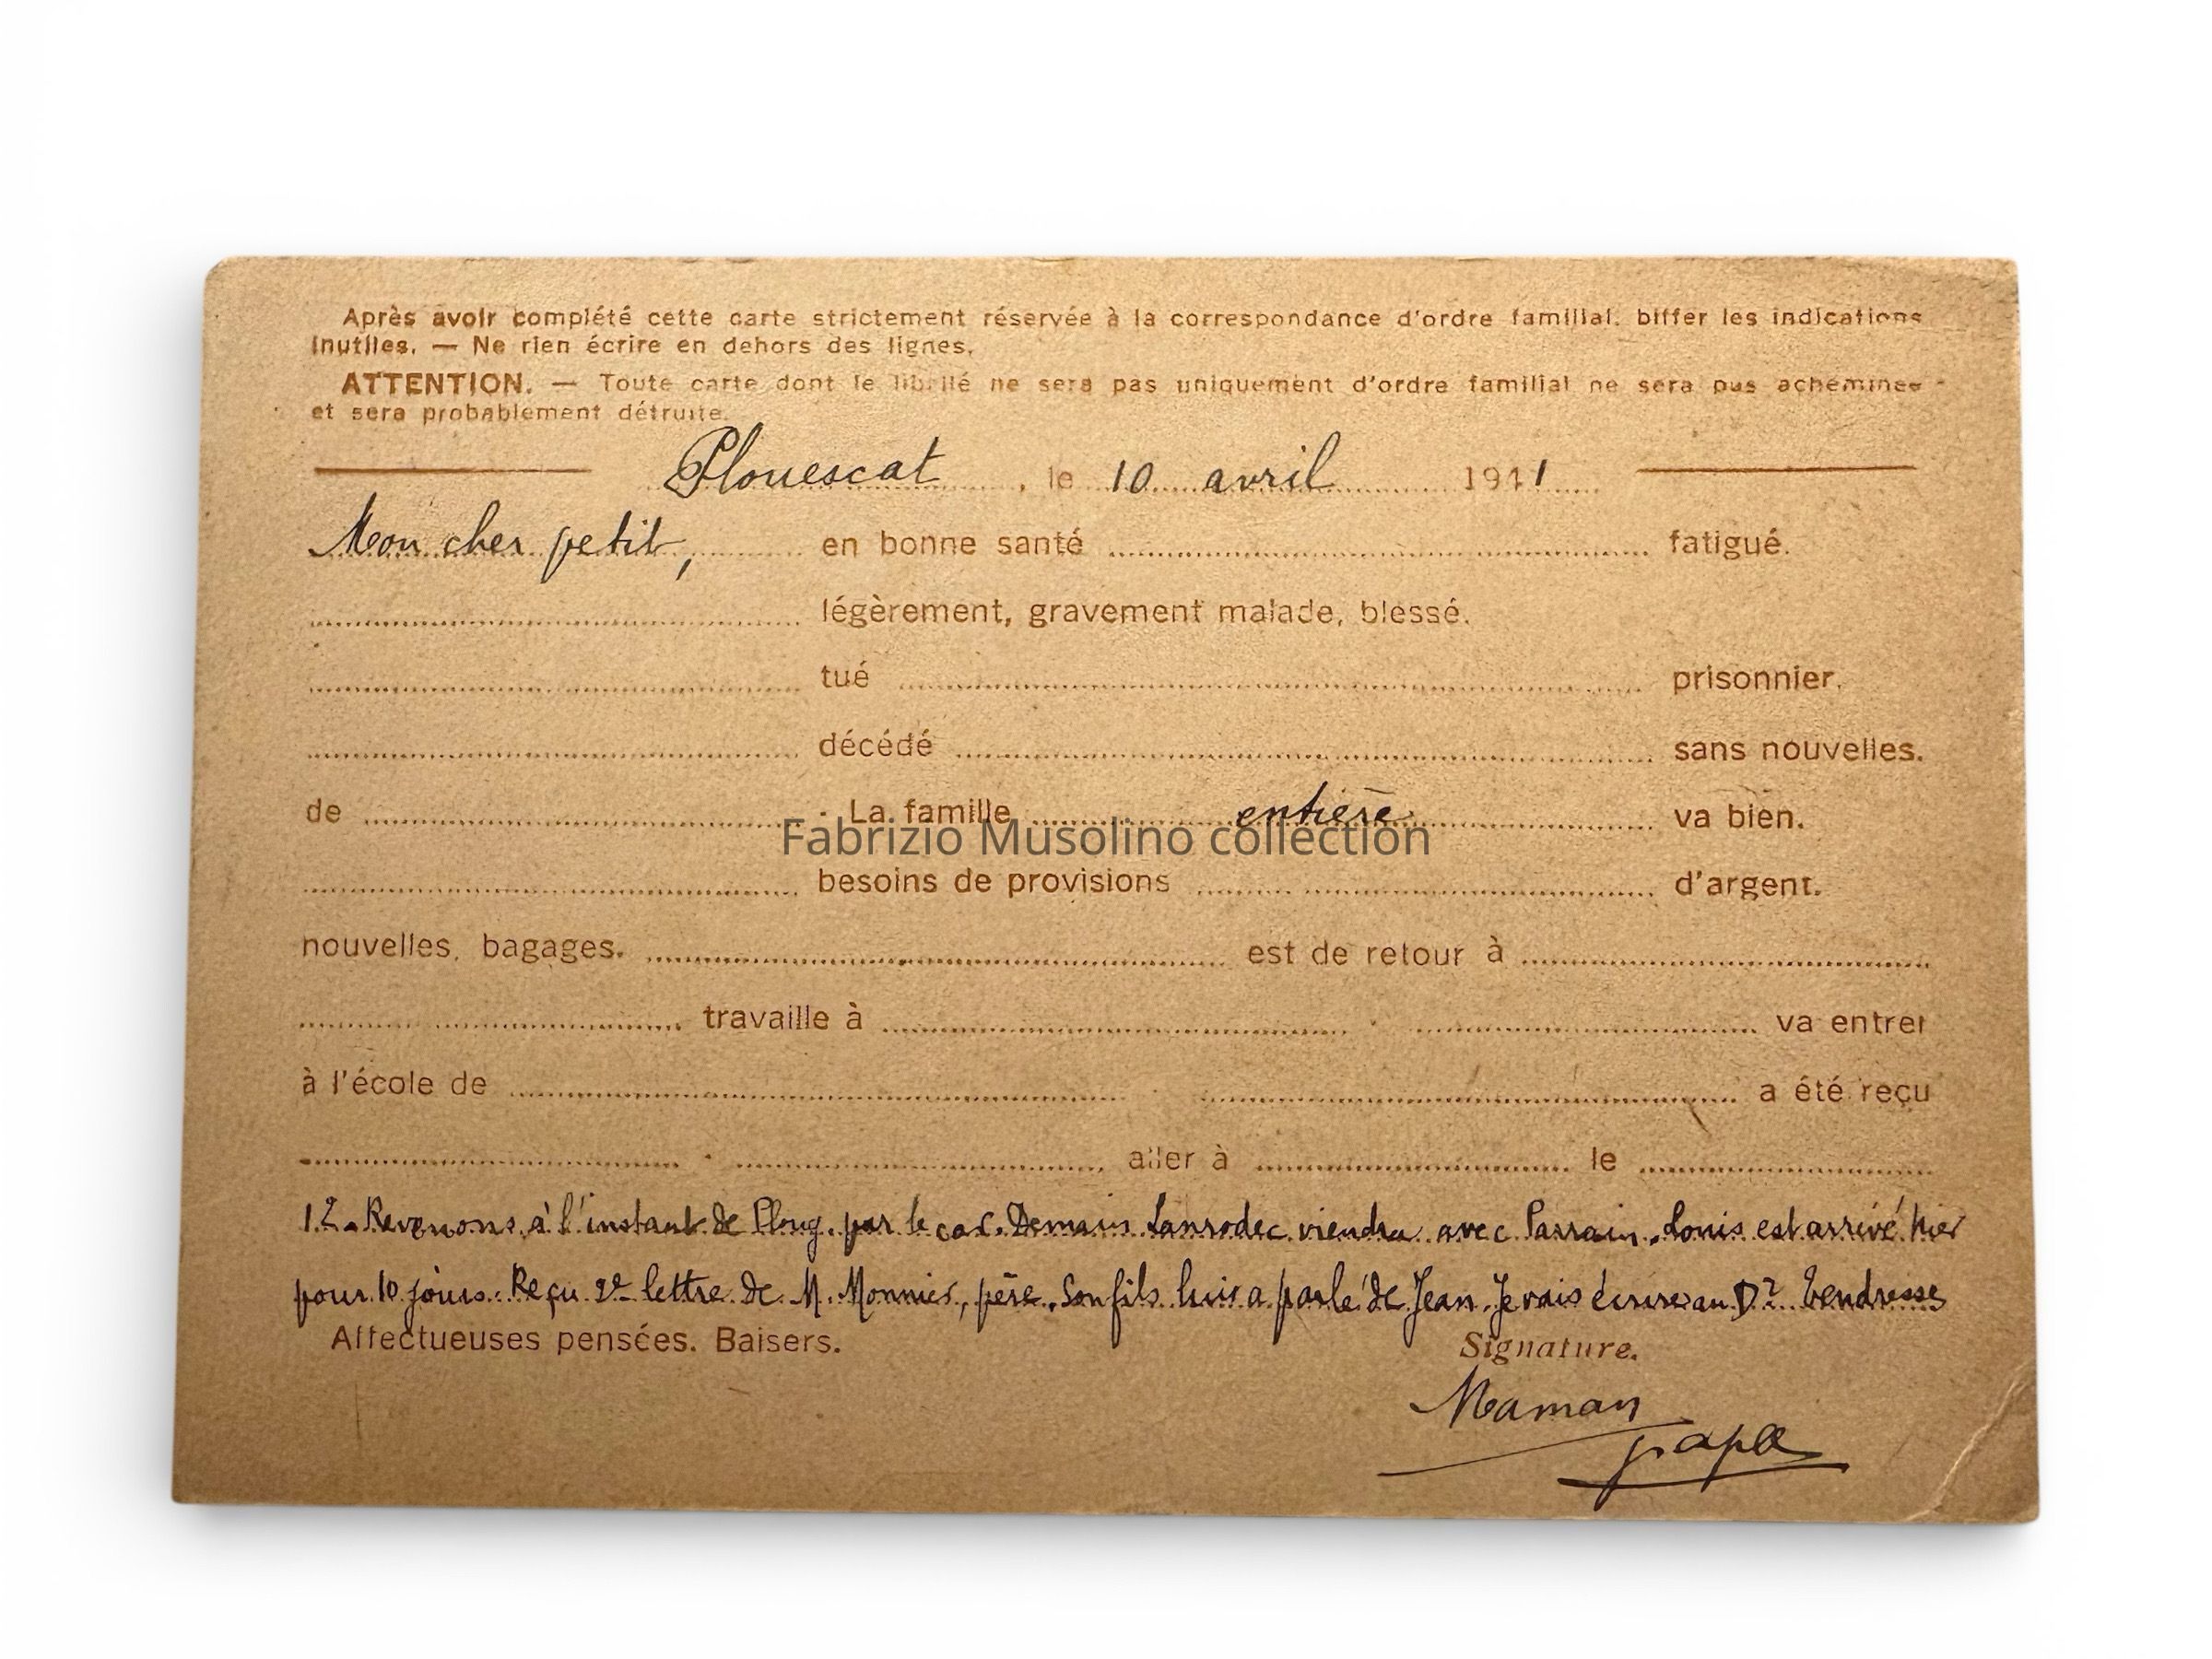 Après avoir complété cette carte strictement réservée à la correspondance d'ordre familial, biffer les indications
inutiles. — Ne rien écrire en dehors des lignes.
ATTENTION. — Toute carte dont le libellé ne sera pas uniquement d'ordre familial ne sera pas acheminée
et sera probablement détruite.
Plouescat, le 10 avril 1941
Mon cher petit, en bonne santé fatigué.
légèrement, gravement malade, blessé.
tué prisonnier.
décédé sans nouvelles.
de La famille entière va bien.
Fabrizio Musolino collection
besoins de provisions d'argent.
nouvelles, bagages. est de retour à
travaille à va entrer
à l'école de a été reçu
aller à le
12 - Revenons à l'instant de Ploug. par le car. Demain Lanrodec viendra avec Parrain. Louis est arrivé hier
pour 10 jours. Reçu 2e lettre de M. Monnier, père. Son fils lui a parlé de Jean. Je vais écrire au Dr. Tendresses
Affectueuses pensées. Baisers.
Signature.
Maman
papa